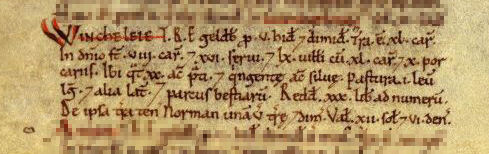 WINCHELEIE T.R.E. geldb̄ p̱ .v. hid̄ ⁊ dimid̄. Tr̄a .ē. xl. car̄.
In dn̄io st̄ .viii. car̄. ⁊ xvi. serui. ⁊ lx. uilli cū .xl. car̄. ⁊ x. por
carijs. Ibi qt̄ xx. ac̄ p̄ti. ⁊ qngente ac̄ silue. Pastura .i. leū
lḡ. ⁊ alia lat̄. ⁊ parcus bestiarū. Redd̄ .xxx. lib̄ ad numerū.
De ipsa tr̄a ten̄ Norman unā v̄ tr̄e ⁊ dim̄. Val̄ .xii. sol̄ ⁊ vi. den̄.